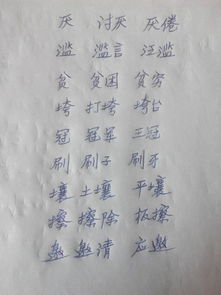 厌 讨厌 厌倦
滥 滥言 泛滥
贫 贫困 贫穷
垮 打垮 垮台
冠 冠军 王冠
刷 刷子 刷牙
壤 土壤 平壤
擦 擦除 板擦
邀 邀请 应邀